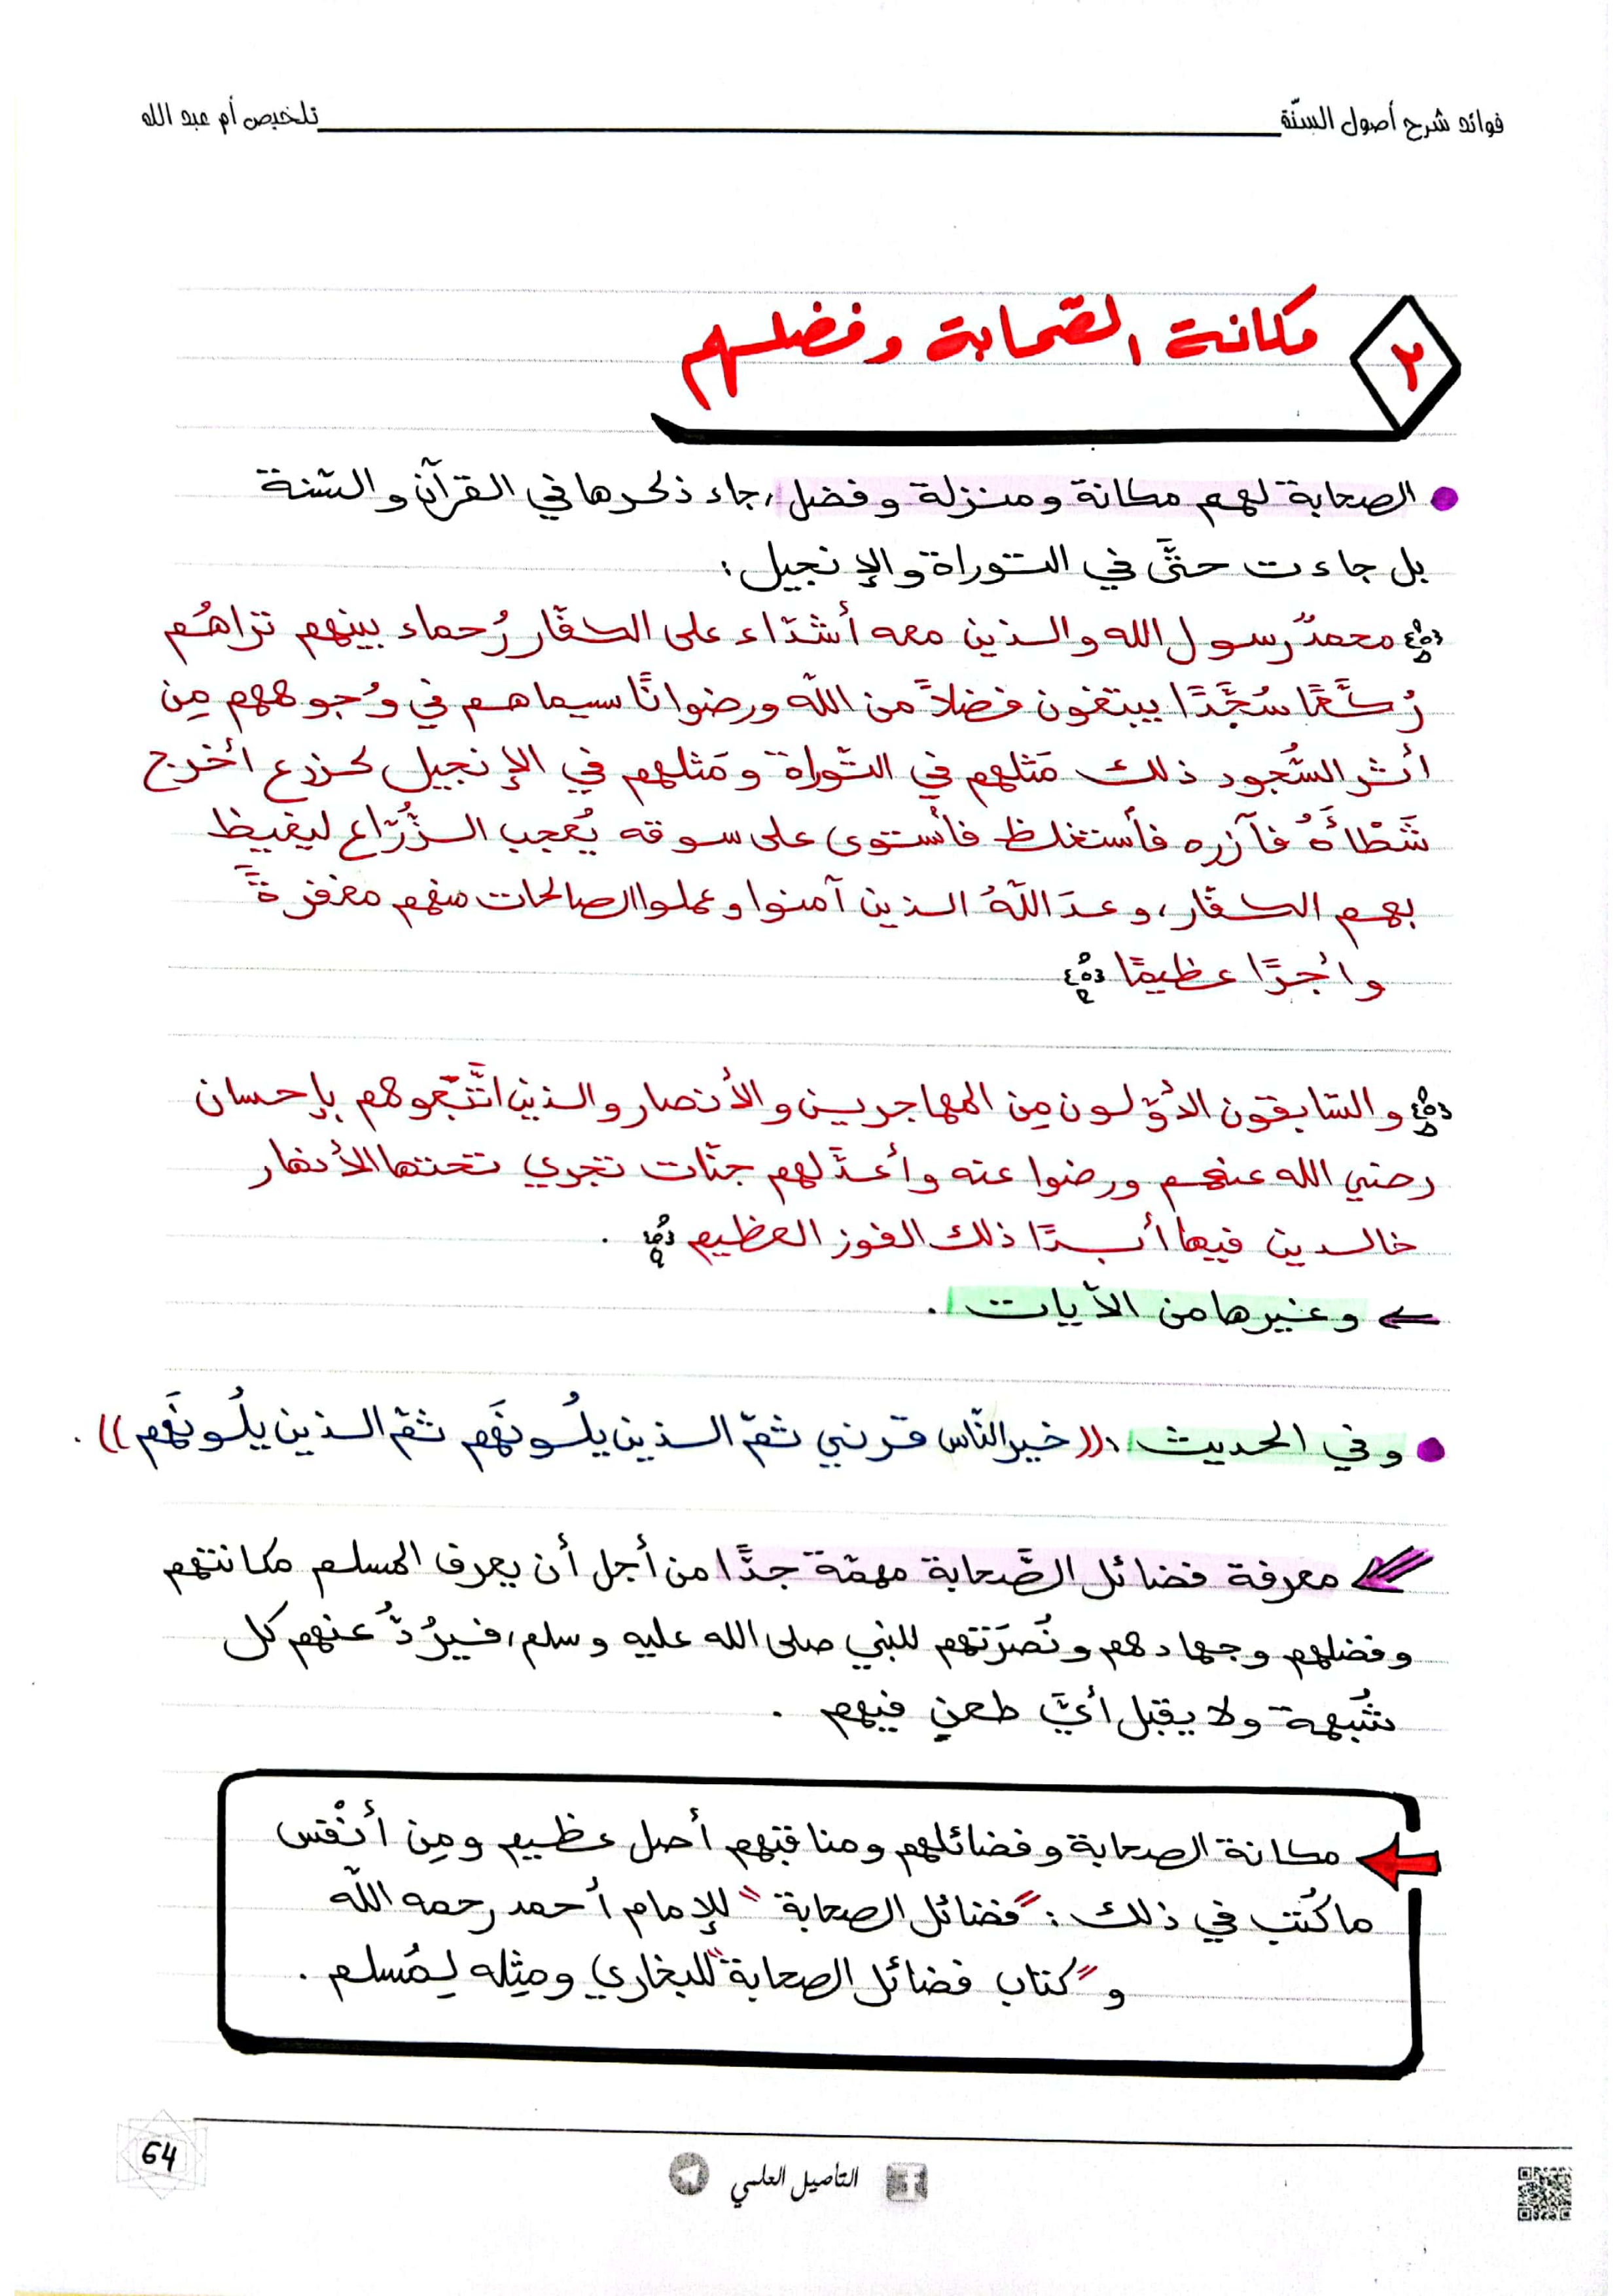 فوائد شرح أصول السنّة تلخيص أم عبد الله
٢ مكانة الصحابة وفضلهم
الصحابة لهم مكانة ومنزلة وفضل، جاء ذكرها في القرآن والسّنة
بل جاءت حتَّى في التوراة والإنجيل:
محمدٌ رسول الله والذين معه أشدّاء على الكفّار رُحماء بينهم تراهُم
رُكَّعًا سُجَّدًا يبتغون فضلاً من اللّه ورضوانًا سيماهم في وُجوههم مِن
أثر السُّجود ذلك مَثلهم في التّوراة ومَثلهم في الإنجيل كزرع أخرج
شَطْأَهُ فآزره فأستغلظ فأستوى على سوقه يُعجب الزُّرّاع ليغيظ
بهم الكفّار، وعدَ اللّهُ الذين آمنوا وعملوا الصالحات منهم مغفرةً
وأجرًا عظيمًا
والسّابقون الأوّلون مِن المهاجرين والأنصار والذين اتَّبَعوهم بإحسان
رضي الله عنهم ورضوا عنه وأعدَّ لهم جنّات تجري تحتها الأنهار
خالدين فيها أبدًا ذلك الفوز العظيم .
وغيرها من الآيات .
وفي الحديث : ((خير النّاس قرني ثمّ الذين يلُونَهم ثمّ الذين يلُونَهم)) .
معرفة فضائل الصَّحابة مهمّة جدًّا من أجل أن يعرف المسلم مكانتهم
وفضلهم وجهادهم ونُصرَتهم للنبي صلى الله عليه وسلم، فيرُدُّ عنهم كل
شُبهة ولا يقبل أيَّ طعنٍ فيهم .
مكانة الصحابة وفضائلهم ومناقبهم أصل عظيم ومِن أنْفَس
ما كُتب في ذلك : "فضائل الصحابة" للإمام أحمد رحمه اللّه
و"كتاب فضائل الصحابة" للبخاري ومِثله لمُسلم .
64
التأصيل العلمي